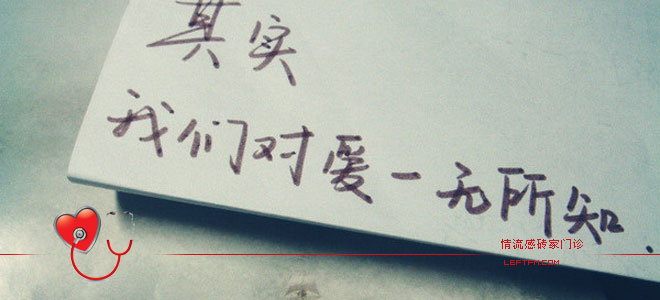 其实
我们对爱一无所知.
情流感砖家门诊
LGFTFK.COM